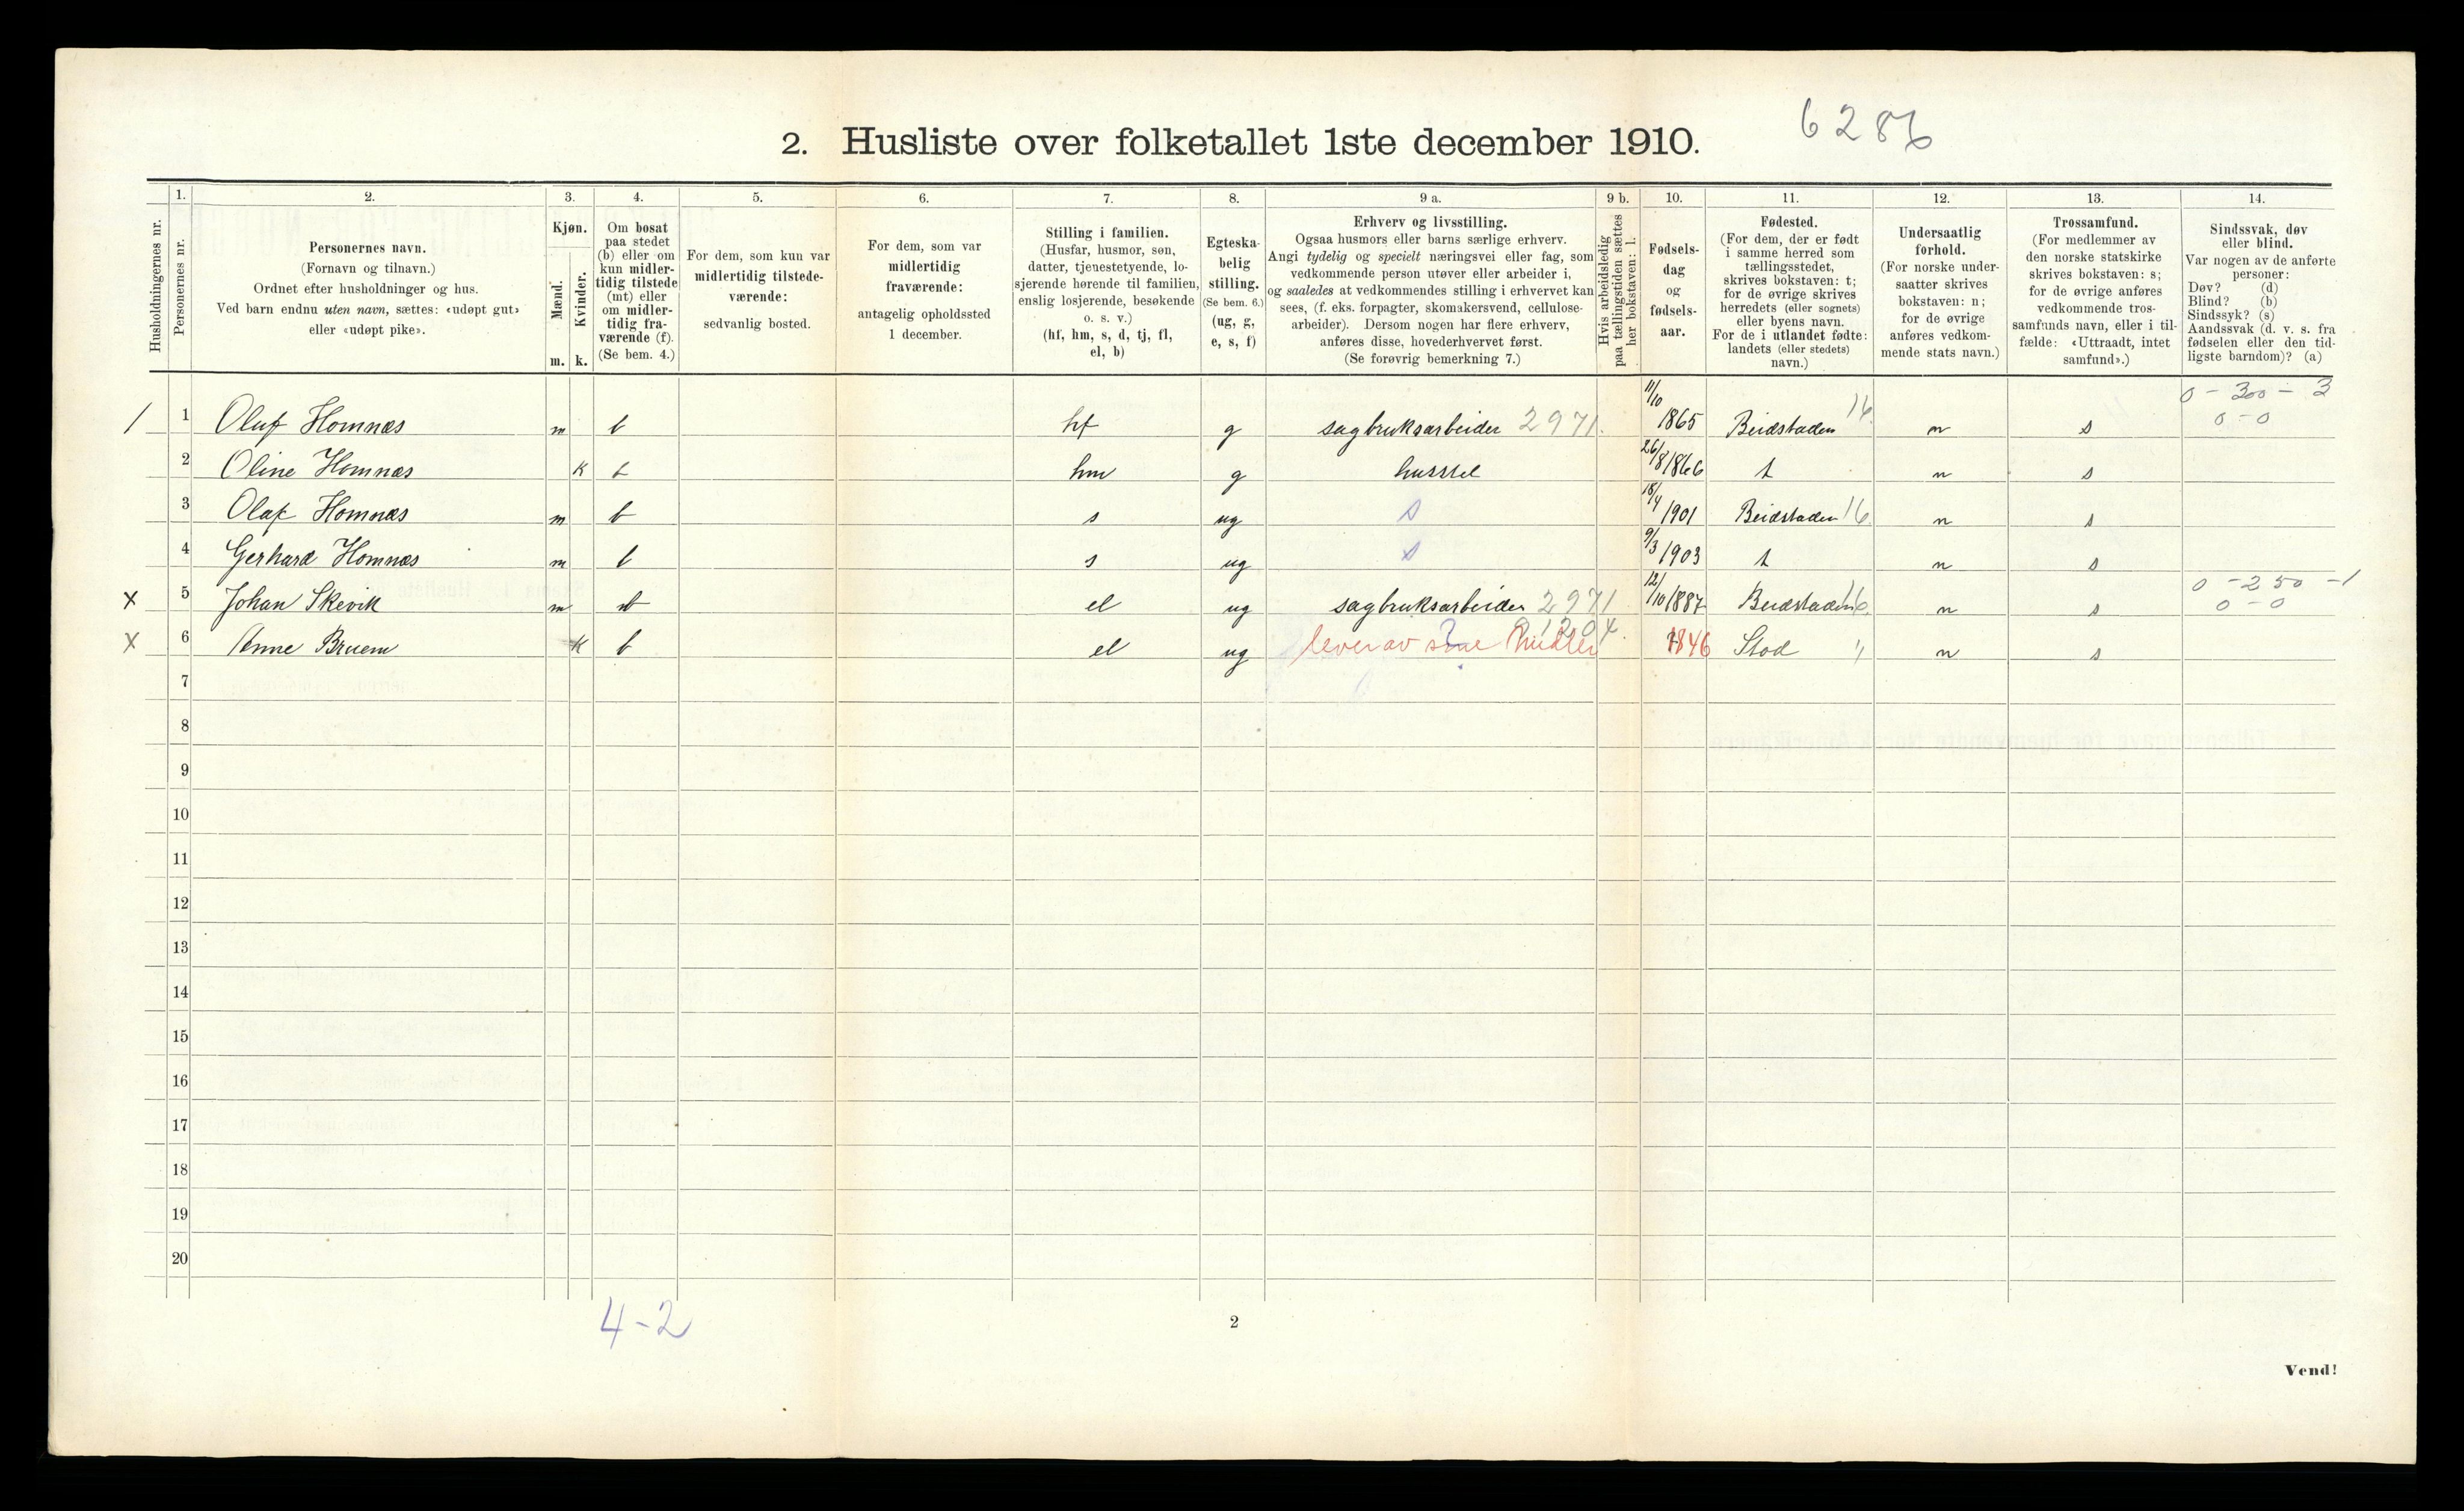 6286
2. Husliste over folketallet 1ste december 1910.
1. 2. 3. 4. 5. 6. 7. 8. 9 a. 9 b. 10. 11. 12. 13. 14.
Husholdningernes nr.
Personernes nr.
Personernes navn.
(Fornavn og tilnavn.)
Ordnet efter husholdninger og hus.
Ved barn endnu uten navn, sættes: «udøpt gut»
eller «udøpt pike».
Kjøn.
Mænd.
Kvinder.
m. k.
Om bosat
paa stedet
(b) eller om
kun midler-
tidig tilstede
(mt) eller
om midler-
tidig fra-
værende (f).
(Se bem. 4.)
For dem, som kun var
midlertidig tilstede-
værende:
sedvanlig bosted.
For dem, som var
midlertidig
fraværende:
antagelig opholdssted
1 december.
Stilling i familien.
(Husfar, husmor, søn,
datter, tjenestetyende, lo-
sjerende hørende til familien,
enslig losjerende, besøkende
o. s. v.)
(hf, hm, s, d, tj, fl,
el, b)
Egteska-
belig
stilling.
(Se bem. 6.)
(ug, g,
e, s, f)
Erhverv og livsstilling.
Ogsaa husmors eller barns særlige erhverv.
Angi tydelig og specielt næringsvei eller fag, som
vedkommende person utøver eller arbeider i,
og saaledes at vedkommendes stilling i erhvervet kan
sees, (f. eks. forpagter, skomakersvend, cellulose-
arbeider). Dersom nogen har flere erhverv,
anføres disse, hovederhvervet først.
(Se forøvrig bemerkning 7.)
Hvis arbeidsledig
paa tællingstiden sættes
her bokstaven: l.
Fødsels-
dag
og
fødsels-
aar.
Fødested.
(For dem, der er født
i samme herred som
tællingsstedet,
skrives bokstaven: t;
for de øvrige skrives
herredets (eller sognets)
eller byens navn.
For de i utlandet fødte:
landets (eller stedets)
navn.)
Undersaatlig
forhold.
(For norske under-
saatter skrives
bokstaven: n;
for de øvrige
anføres vedkom-
mende stats navn.)
Trossamfund.
(For medlemmer av
den norske statskirke
skrives bokstaven: s;
for de øvrige anføres
vedkommende tros-
samfunds navn, eller i til-
fælde: «Uttraadt, intet
samfund».)
Sindssvak, døv
eller blind.
Var nogen av de anførte
personer:
Døv? (d)
Blind? (b)
Sindssyk? (s)
Aandssvak (d. v. s. fra
fødselen eller den tid-
ligste barndom)? (a)
0 - 300 - 3
/ 1 Oluf Homnæs m b hf g sagbruksarbeider 2971. 11/10 1865 Beidstaden 16 n s 0 - 0
2 Oline Homnæs k b hm g husstel 26/8 1866 t n s
3 Olaf Homnæs m b s ug s 18/4 1901 Beidstaden 16 n s
4 Gerhard Homnæs m b s ug s 9/3 1903 t n s
0 - 250 - 1
x 5 Johan Skevik m b el ug sagbruksarbeider 2971 12/10 1887 Beidstaden 16 n s 0 - 0
x 6 Anne Bruem k b el ug lever av sine midler 1846 Stod n s
7
8
9
10
11
12
13
14
15
16
17
18
19
20
4-2
2
Vend!